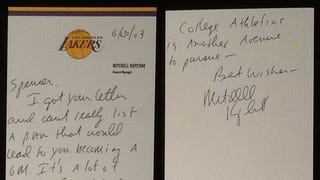 LOS ANGELES
LAKERS
MITCHELL KUPCHAK
General Manager
6/20/03
Spencer,
I got your letter
and can't really list
a plan that would
lead to you becoming a
GM. It's a lot of
College Athletics
is Another Avenue
to pursue—
Best Wishes—
Mitchell